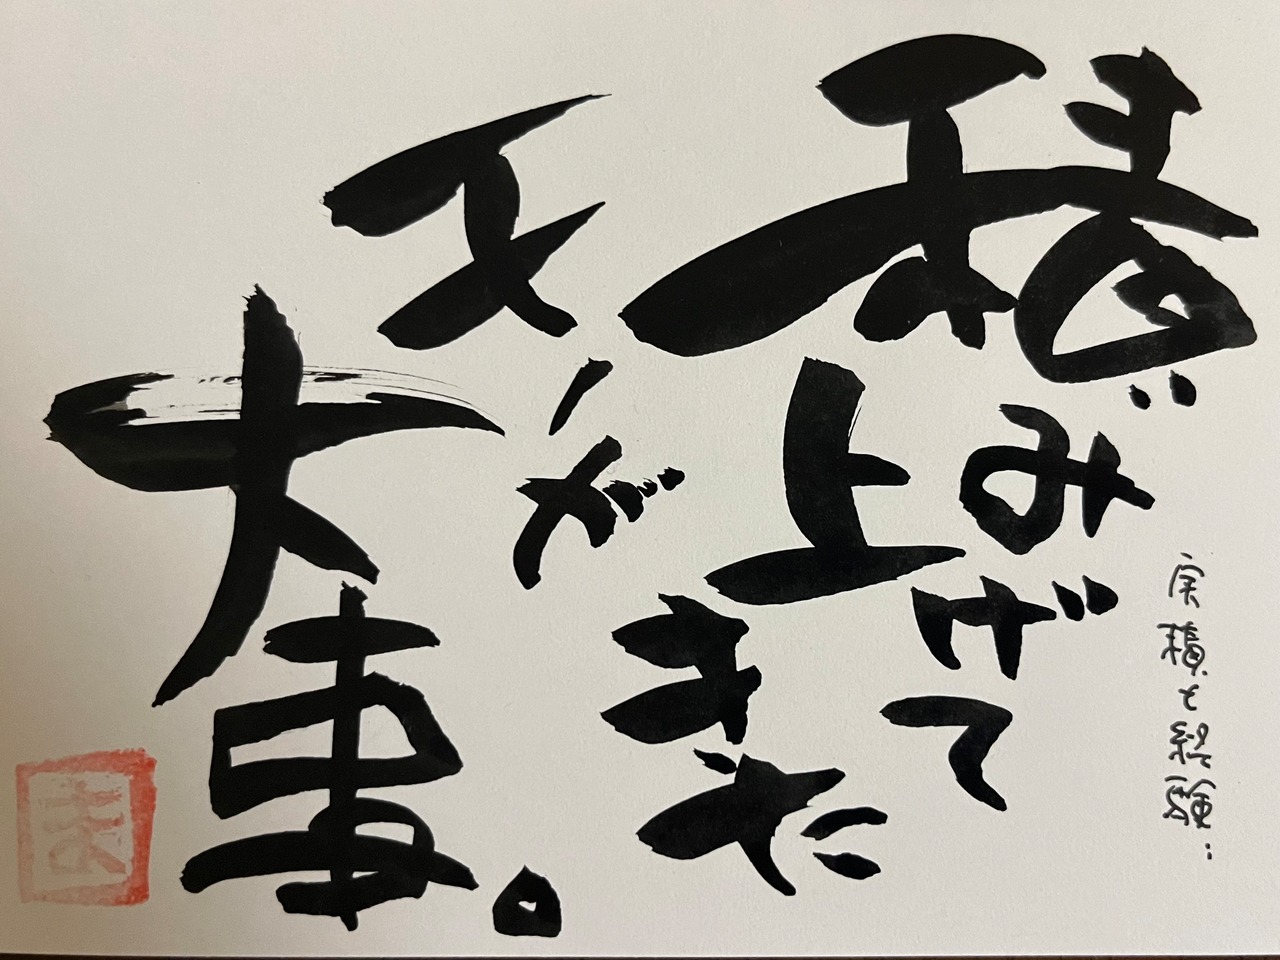 実積と経験‥
積み上げてきた
モノが
大事。